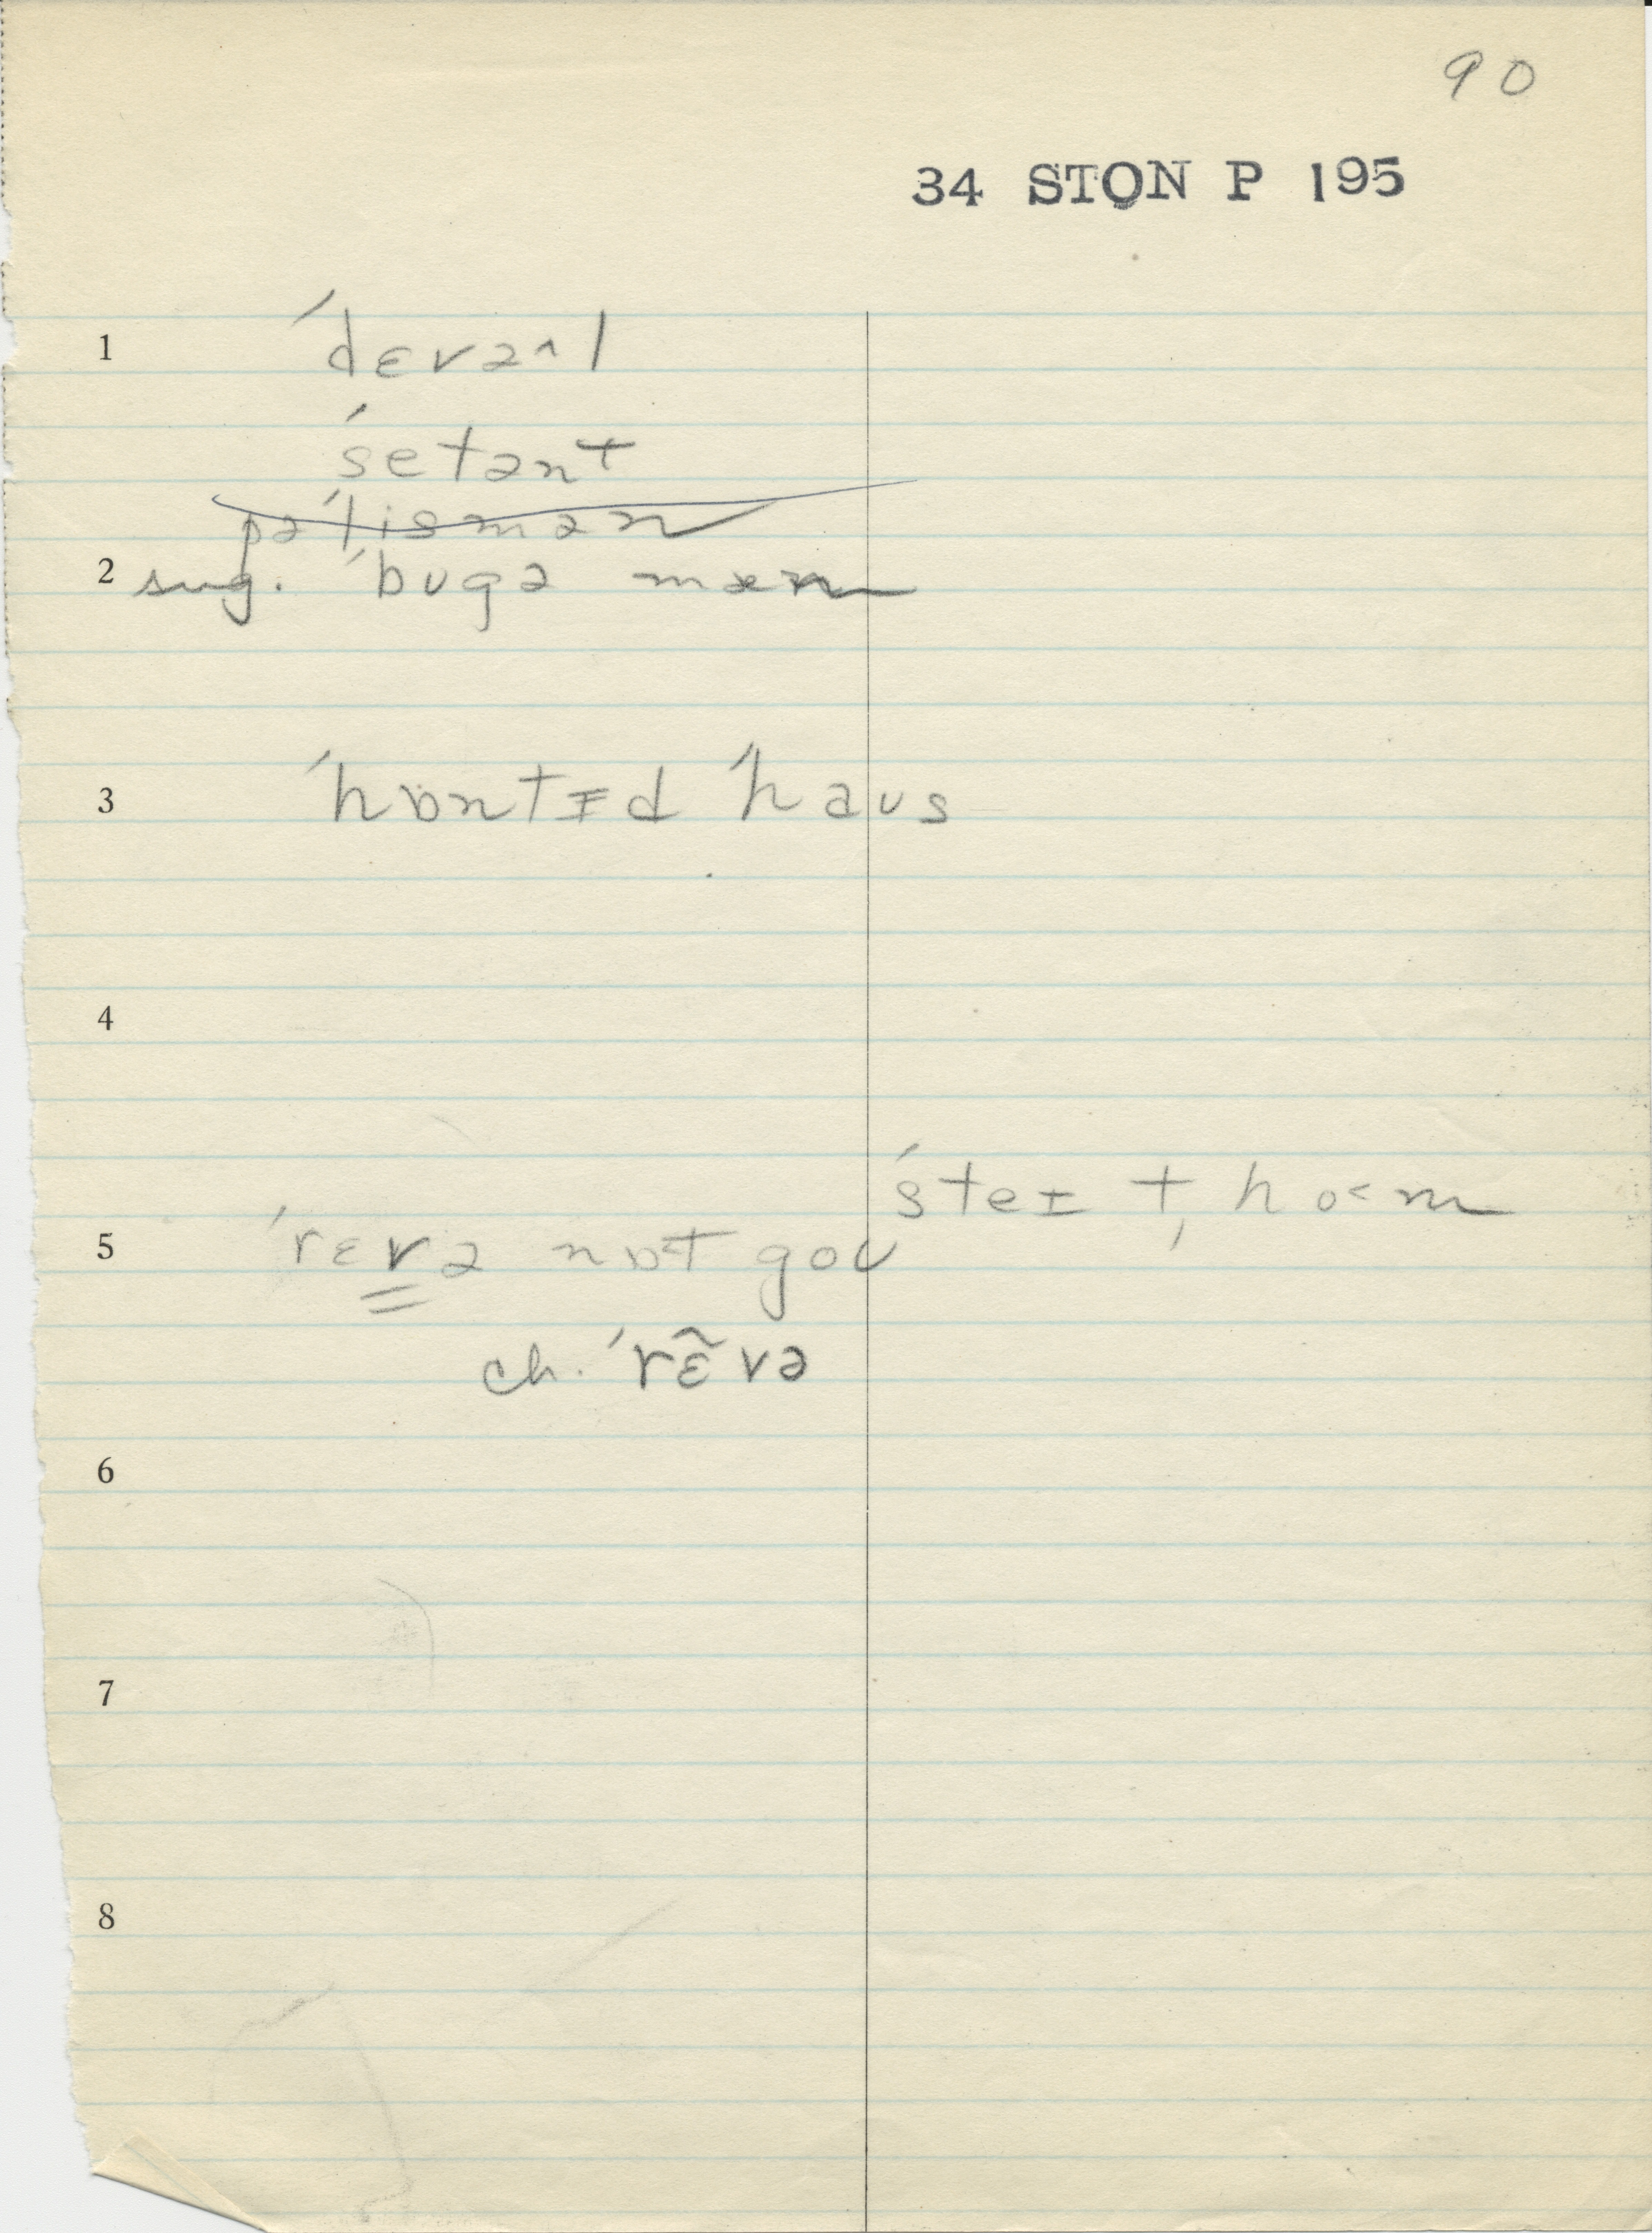 90
34 STON P 195
1 ˈdɛvə^l
ˈsetənt
pəˈlismən
2 sug. ˈbugə mæn
3 ˈhɒntɪd ˈhaʊs
4
ˈsteɪt, ho<m
5 ˈrɛvə nɒt goʊ
ch. ˈrɛ̃və
6
7
8